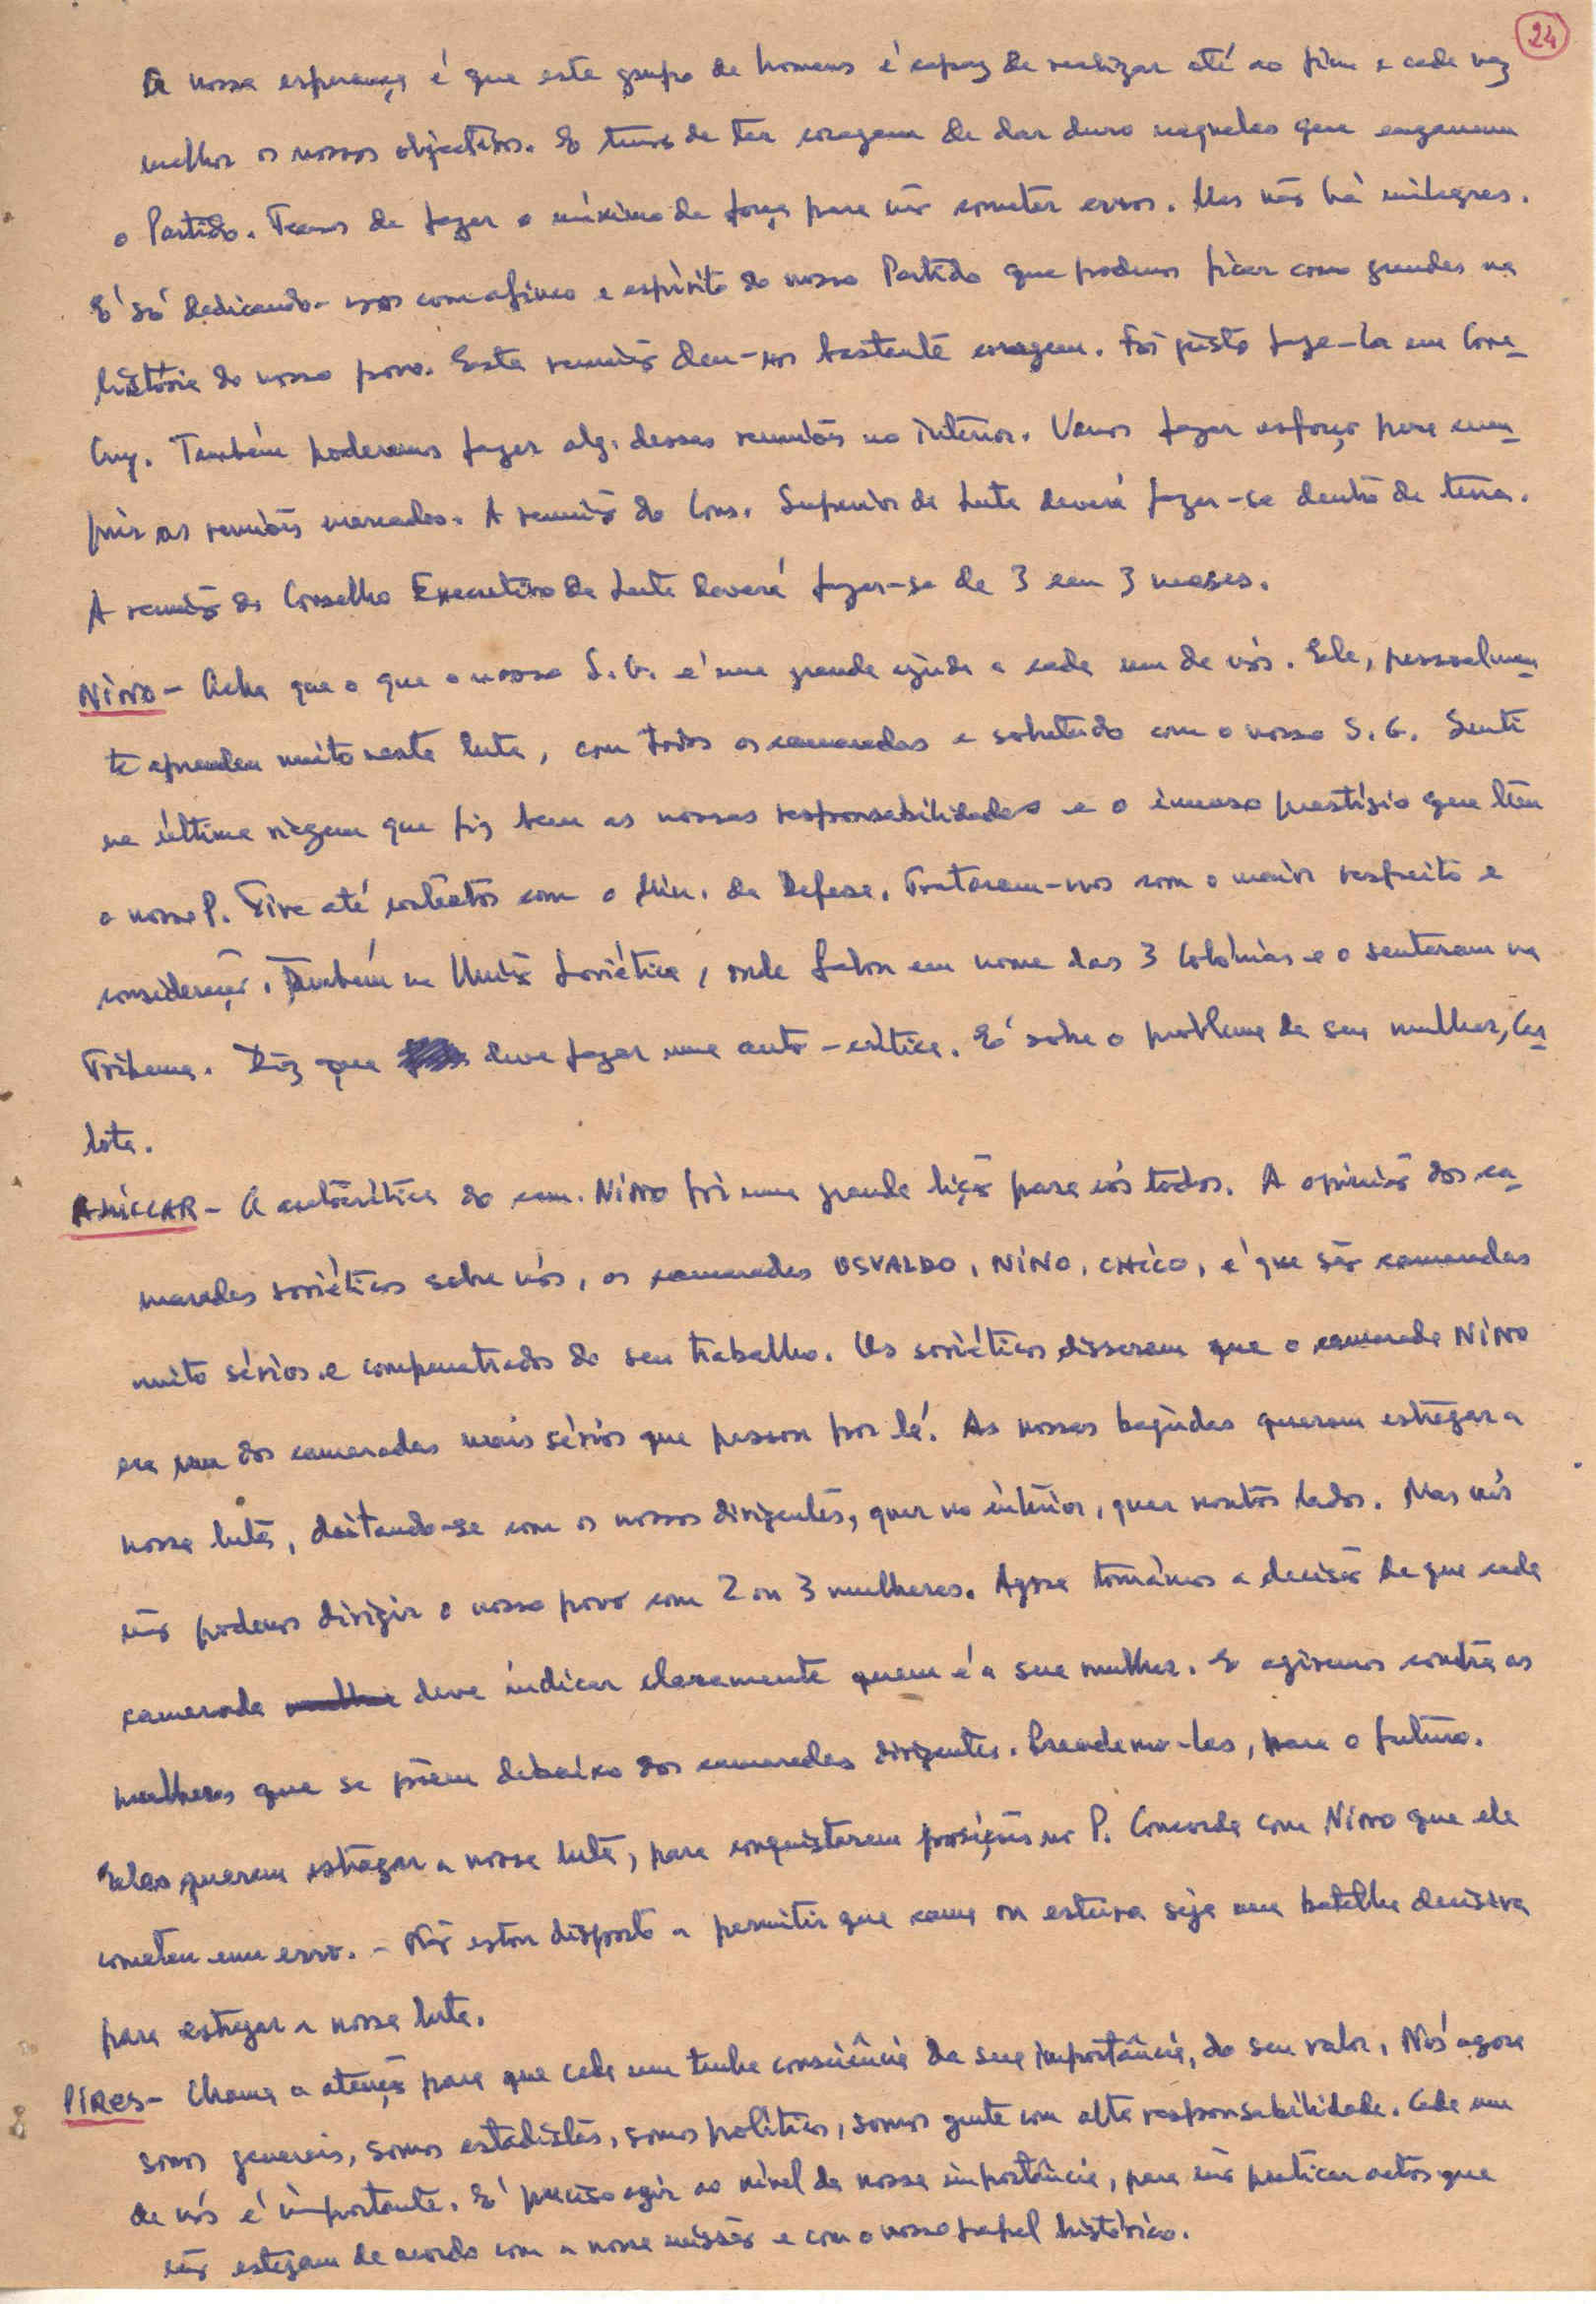 24
A nossa esperança é que este grupo de homens é capaz de realizar até ao fim e cada vez
melhor os nossos objectivos. E temos de ter coragem de dar duro naqueles que enganem
o Partido. Temos de fazer o máximo de força para não cometer erros. Mas não há milagres.
É só dedicando-nos com afinco e espírito do nosso Partido que podemos ficar como grandes na
história do nosso povo. Esta reunião deu-nos bastante coragem. Foi justo faze-la em Cona-
Cry. Também poderemos fazer alg. dessas reuniões no interior. Vamos fazer esforço para cum-
prir as reuniões marcadas. A reunião do Cons. Superior da Luta deverá fazer-se dentro da terra.
A reunião do Conselho Executivo da Luta deverá fazer-se de 3 em 3 meses.
NINO - Acha que o que o nosso S.G. é uma grande ajuda a cada um de nós. Ele, pessoalmen-
te aprendeu muito nesta luta, com todos os camaradas e sobretudo com o nosso S.G. Senti
na última viagem que fiz bem as nossas responsabilidades e o imenso prestígio que têm
o nosso P. Tive até contactos com o Min. da Defesa. Trataram-nos com o maior respeito e
consideração. Também na União Soviética, onde falou em nome das 3 Colónias e o sentaram na
Tribuna. Diz que deve fazer uma auto-crítica. É sobre o problema da sua mulher, Car-
lota.
AMILCAR - A autocrítica do cam. NINO foi uma grande lição para nós todos. A opinião dos ca-
maradas soviéticos sobre nós, os camaradas OSVALDO, NINO, CHICO, é que são camaradas
muito sérios e compenetrados do seu trabalho. Os soviéticos disseram que o camarada NINO
era um dos camaradas mais sérios que passou por lá. As nossas bajudas querem estragar a
nossa luta, deitando-se com os nossos dirigentes, quer no interior, quer noutros lados. Mas nós
não podemos dirigir o nosso povo com 2 ou 3 mulheres. Agora tomámos a decisão de que cada
camarada deve indicar claramente quem é a sua mulher. E agiremos contra as
mulheres que se põem debaixo dos camaradas dirigentes. Prendemo-las, para o futuro.
Elas querem estragar a nossa luta, para conquistarem posições no P. Concorda com NINO que ele
cometeu um erro. - Não estou disposto a permitir que cama ou esteira seja uma batalha decisiva
para estragar a nossa luta.
PIRES - Chama a atenção para que cada um tenha consciência da sua importância, do seu valor. Nós agora
somos generais, somos estadistas, somos políticos, somos gente com alta responsabilidade. Cada um
de nós é importante. É preciso agir ao nível da nossa importância, para não praticar actos que
não estejam de acordo com a nossa missão e com o nosso papel histórico.